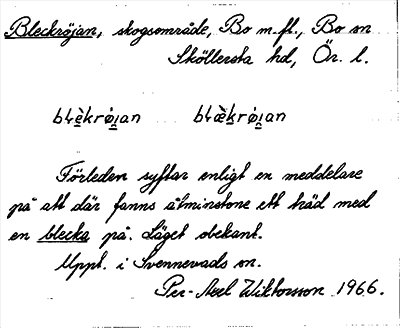 Bleckröjan, skogsområde, Bo m.fl., Bo sn
Sköllersta hd, Ör. l.
blèkrǿi̯an blæ̀krǿi̯an
Förleden syftar enligt en meddelare
på att där fanns åtminstone ett träd med
en blecka på. Läget obekant.
Uppt. i Svennevads sn.
Per-Axel Wiktorsson 1966.